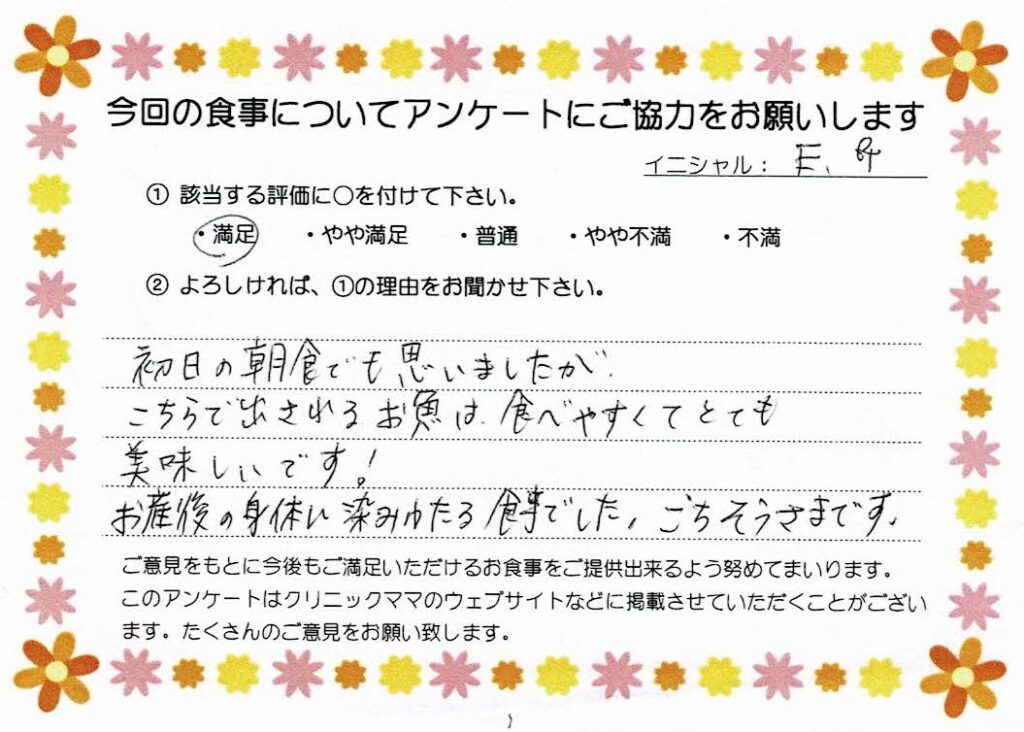 今回の食事についてアンケートにご協力をお願いします
イニシャル： E.
① 該当する評価に〇を付けて下さい。
・満足 ・やや満足 ・普通 ・やや不満 ・不満
② よろしければ、①の理由をお聞かせ下さい。
初日の朝食でも思いましたが、
こちらで出されるお魚は、食べやすくてとても
美味しいです！
お産後の身体に染みわたる食事でした。ごちそうさまです。
ご意見をもとに今後もご満足いただけるお食事をご提供出来るよう努めてまいります。
このアンケートはクリニックママのウェブサイトなどに掲載させていただくことがござい
ます。たくさんのご意見をお願い致します。